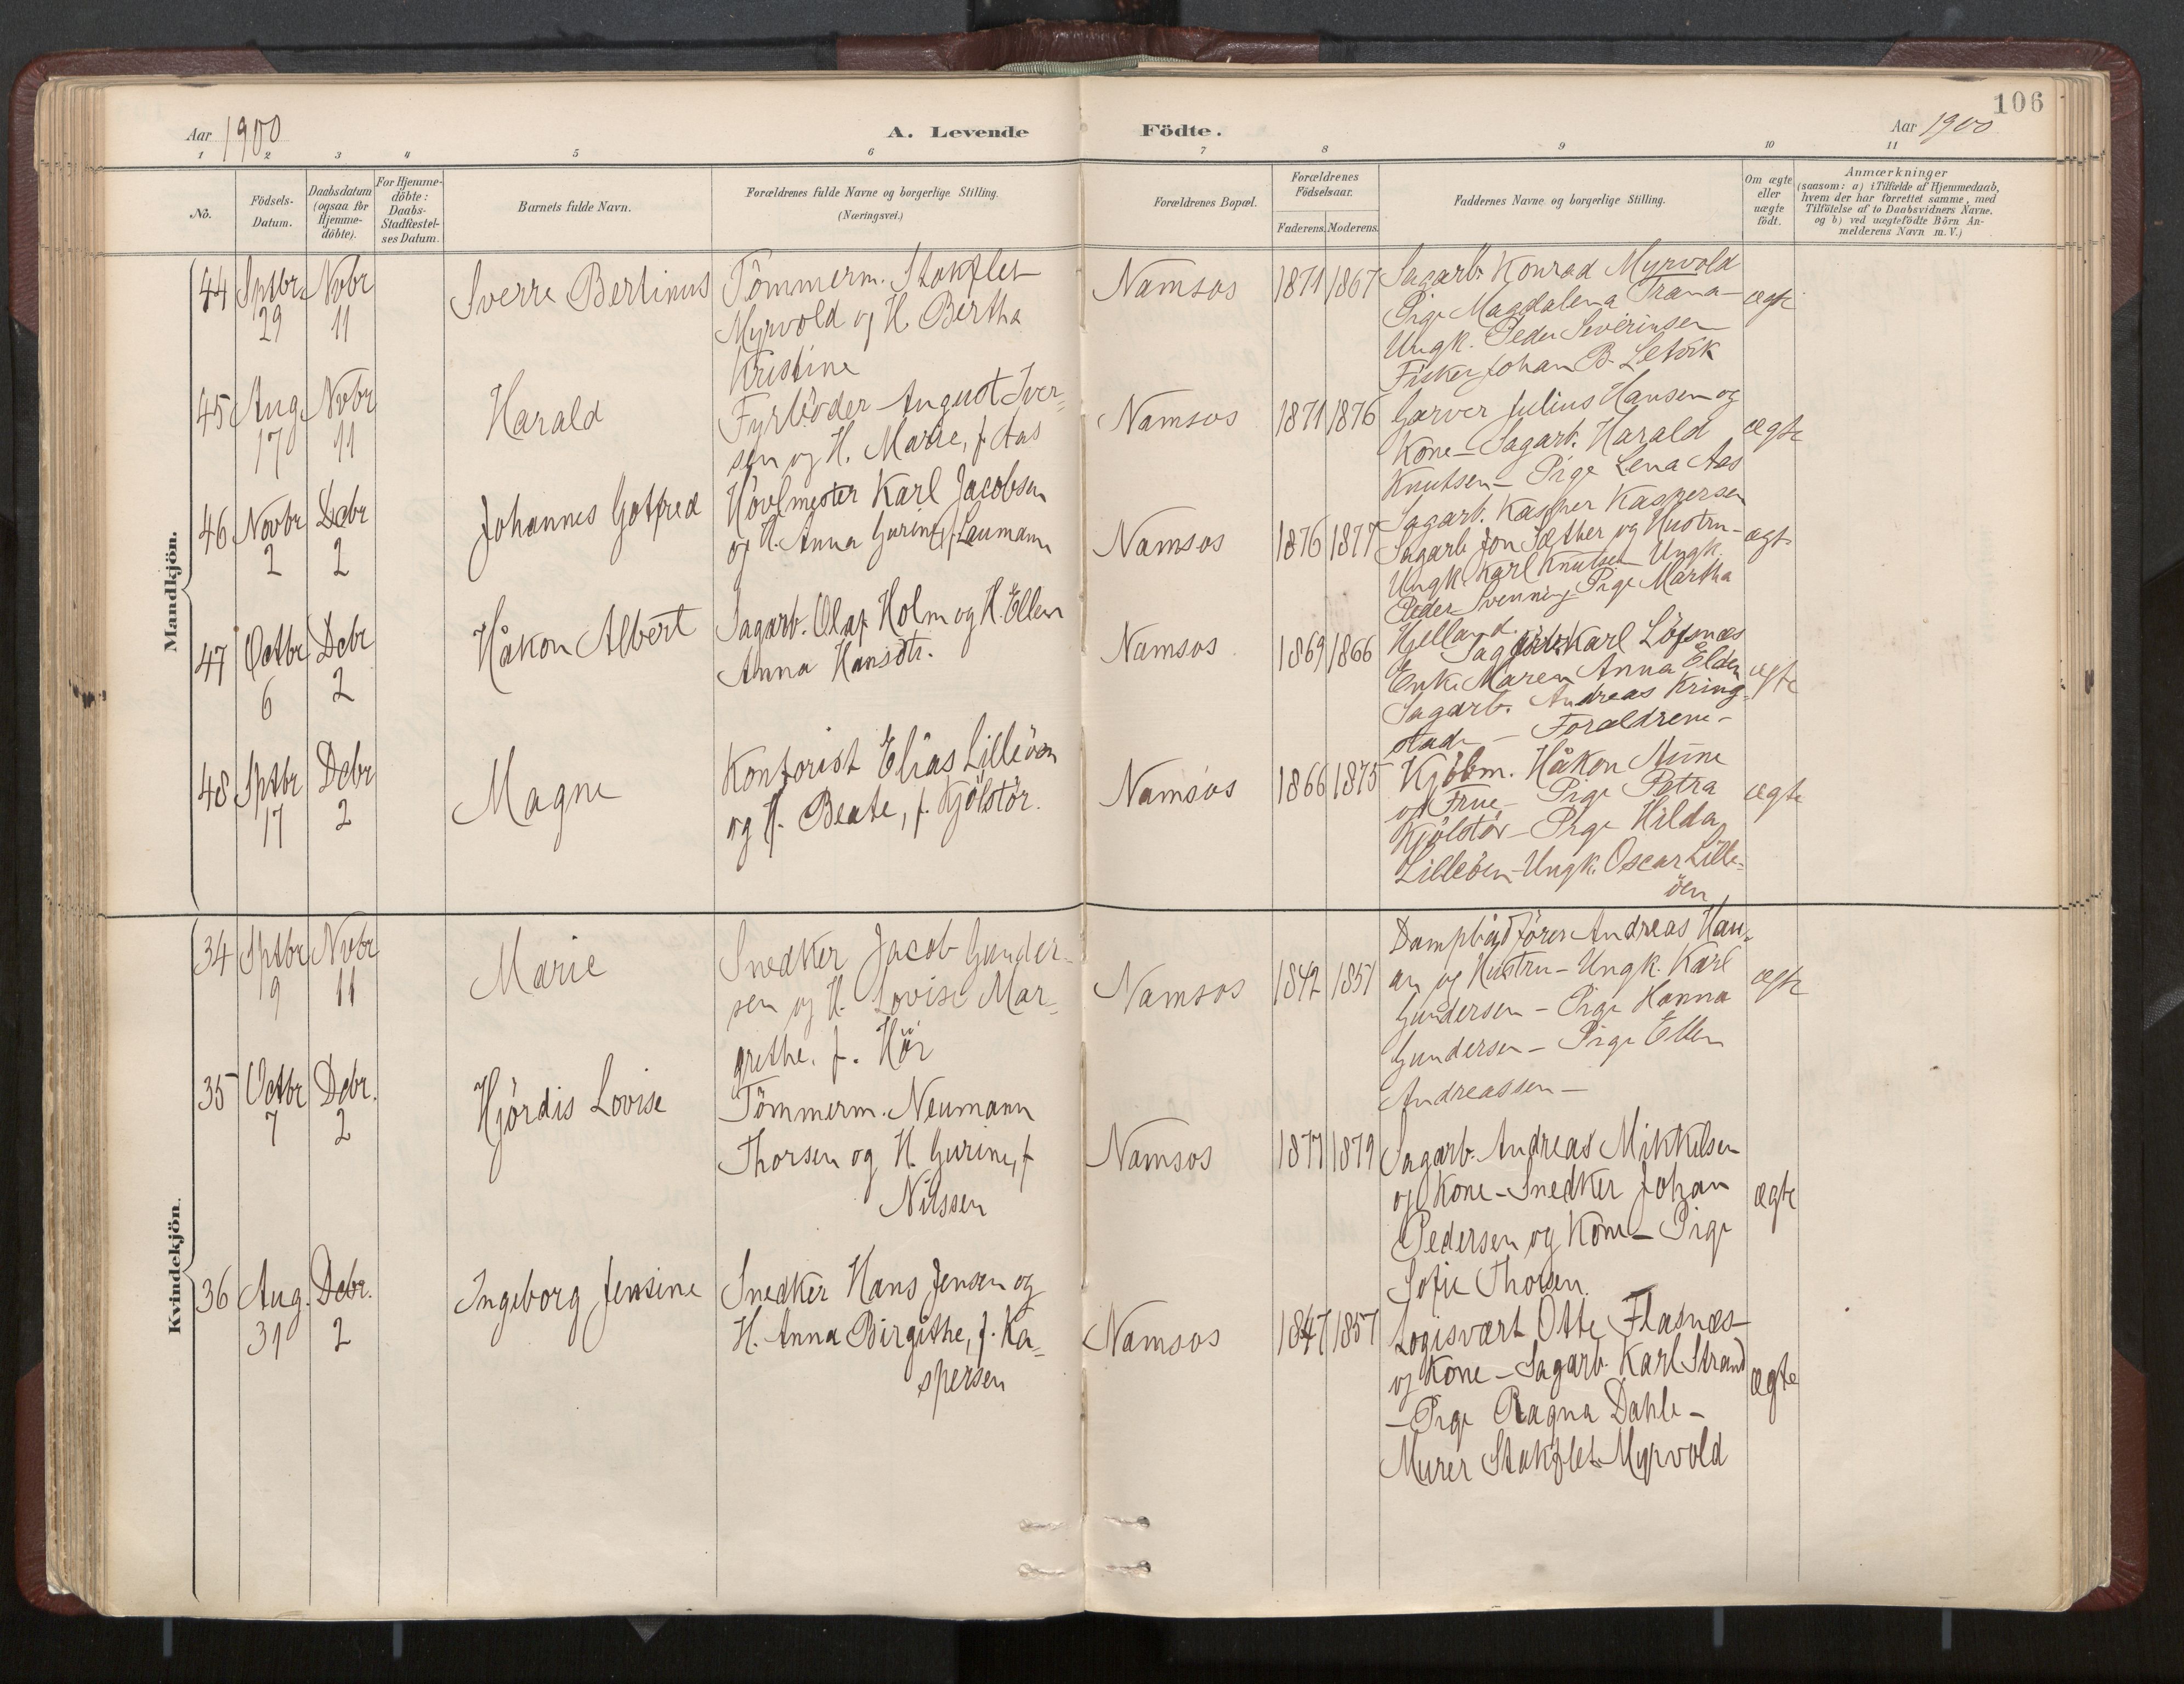 106
Aar 1900
A. Levende
Födte.
Aar 1900
1 2 3 4 5 6 7 8 9 10 11
No.
Födsels-
Datum.
Daabsdatum
(ogsaa for
Hjemme-
döbte).
For Hjemme-
döbte:
Daabs-
Stadfæstel-
ses Datum.
Barnets fulde Navn.
Forældrenes fulde Navne og borgerlige Stilling.
(Næringsvei.)
Forældrenes Bopæl.
Forældrenes
Födselsaar.
Faderens. Moderens.
Faddernes Navne og borgerlige Stilling.
Om ægte
eller
uægte
födt.
Anmærkninger
(saasom: a) i Tilfælde af Hjemmedaab,
hvem der har forrettet samme, med
Tilföielse af to Daabsvidners Navne,
og b) ved uægtefödte Börn An-
melderens Navn m. V.)
Mandkjön.
44
Sptbr.
29
Nvbr
11
Sverre Bertinus
Tömmerm. Stokflet
Myrvold og H. Bertha
Kristine
Namsos
1871
1867
Sagarb. Konrad Myrvold
Pige Magdalena Trana-
Ungk. Peder Severinsen
Fisker Johan B. Letvik
ægte
45
Aug
17
Nvbr
11
Harald
Fyrböder August Iver-
sen og H. Marie, f. Aas
Namsos
1871
1876
Garver Julius Hansen og
Kone - Sagarb. Harald
Knutsen - Pige Lena Aas
ægte
46
Novbr
2
Dcbr
2
Johannes Gotfred
Hövlmester Karl Jacobsen
og H. Anna Gurine, f. Laumann
Namsos
1876
1877
Sagarb. Kasper Kaspersen
Sagarb Jon Sæther og Hustru-
Ungk. Karl Knutsen Ungk.
Peder Svenning Pige Martha
Hjelland.
ægte
47
Octbr
6
Dcbr
2
Håkon Albert
Sagarb. Olaf Holm og H. Ellen
Anna Hansdtr.
Namsos
1869
1866
Sagarb. Karl Löfsnæs
Enke Maren Anna Elden
Sagarb. Andreas Kring-
stad - Forældrene -
ægte
48
Sptbr
17
Dcbr
2
Magne
Kontorist Elias Lilleöen
og H. Beate, f. Kjölstör.
Namsos
1866
1875
Kjöbm. Håkon Aune
og Frue - Pige Petra
Kjölstör - Pige Hilda
Lilleöen - Ungk. Oscar Lille-
öen
ægte
Kvindekjön.
34
Sptbr
9
Nvbr
11
Marie
Snedker Jacob Gunder-
sen og H. Lovise Mar-
grethe, f. Höi
Namsos
1842
1857
Dampbådförer Andreas Han-
an og Hustru - Ungk. Karl
Gundersen - Pige Hanna
Gundersen - Pige Ellen
Andreassen -
ægte
35
Octbr
7
Dcbr.
2
Hjördis Lovise
Tömmerm. Neumann
Thorsen og H. Gurine, f
Nilssen
Namsos
1877
1879
Sagarb. Andreas Mikkelsen
og Kone - Snedker Johan
Pedersen og Kone - Pige
Sofie Thorsen.
ægte
36
Aug.
31
Dcbr.
2
Ingeborg Jensine
Snedker Hans Jensen og
H. Anna Birgithe, f. Ka-
spersen
Namsos
1847
1857
Logisvært Otte Flasnæs
og Kone - Sagarb. Karl Strand
- Pige Ragna Dahle -
Murer Stokflet Myrvold
ægte